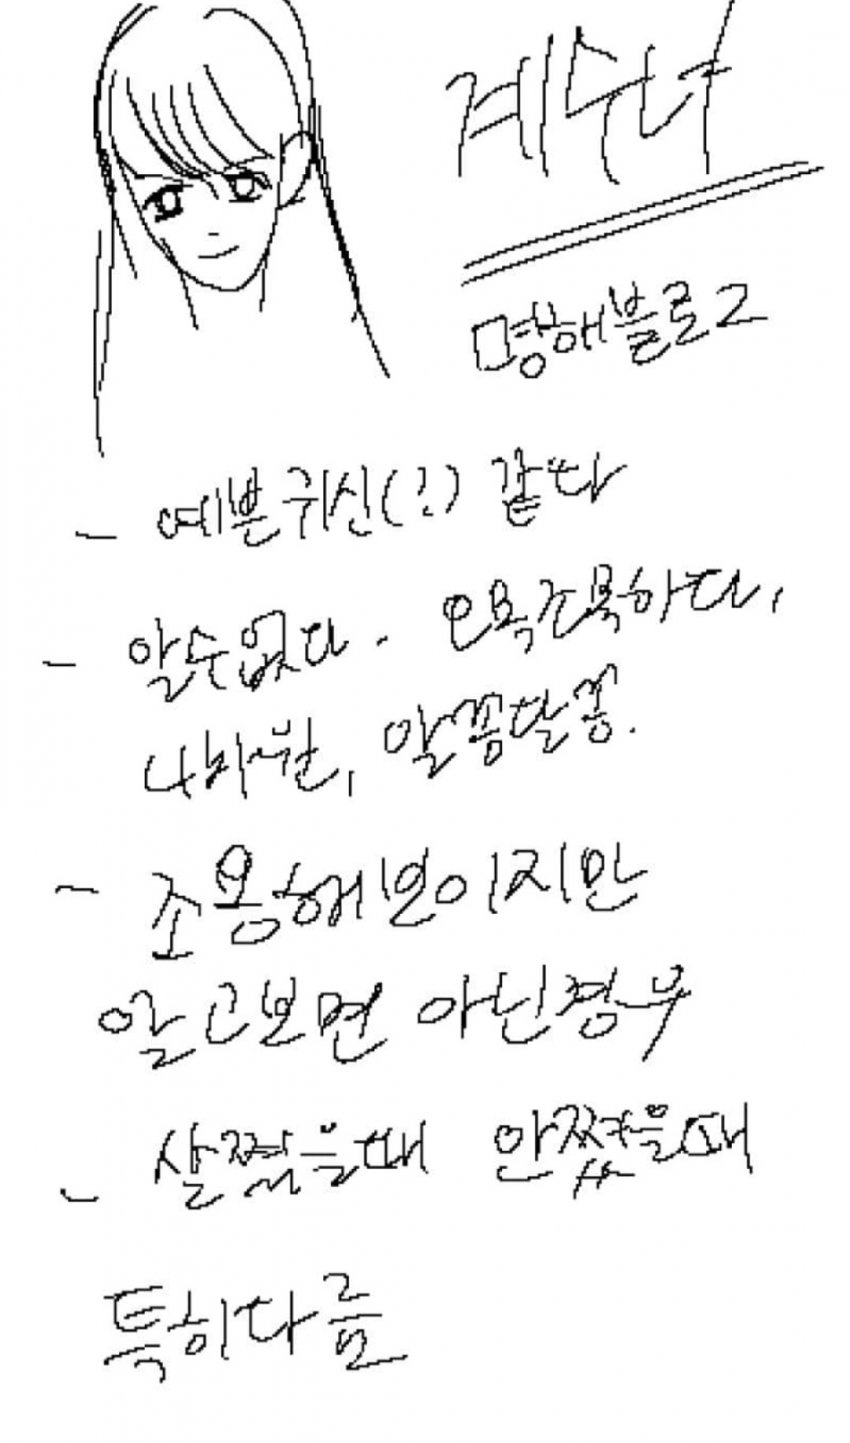 계수녀
명해블로그
- 예쁜귀신(?) 같다
- 알수없다. 오목조목하다,
나비원, 알쏭달쏭.
- 조용해보이지만
알고보면 아닌경우
- 살쪘을때 안쪘을때
특히다름